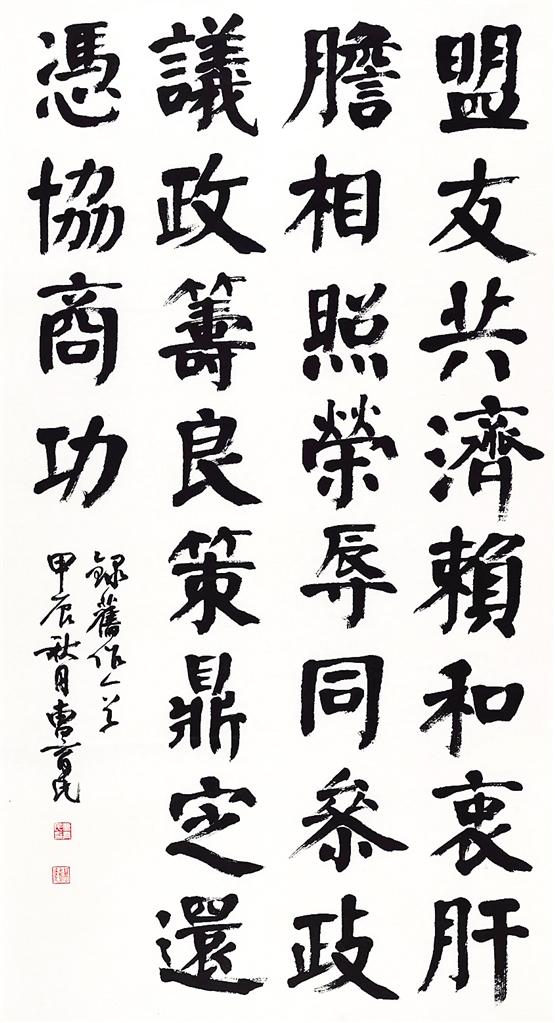 盟友共濟賴和衷肝
膽相照榮辱同參政
議政籌良策鼎定還
憑協商功
錄舊作一首
甲辰秋月曹育民